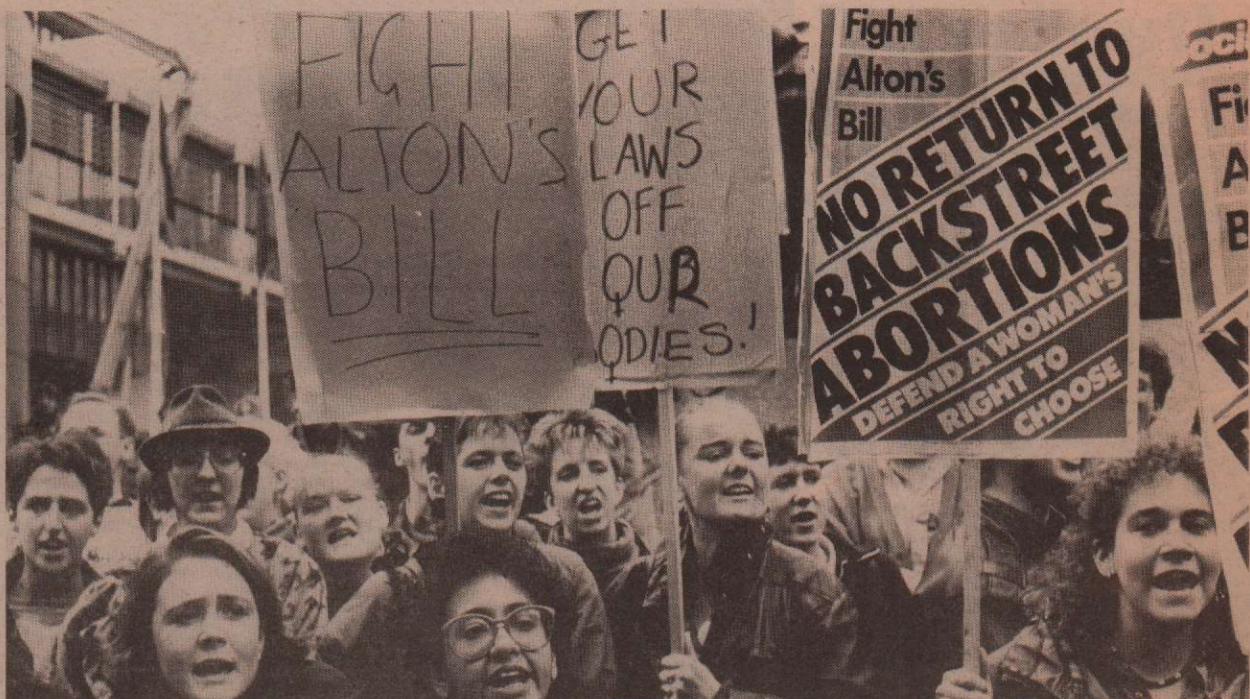 FIGHT
ALTON'S
BILL
GET
YOUR
LAWS
OFF
OUR
ODIES!
Fight
Alton's
Bill
NO RETURN TO
BACKSTREET
ABORTIONS
DEFEND A WOMAN'S
RIGHT TO
CHOOSE
oci
Fi
A
B
N